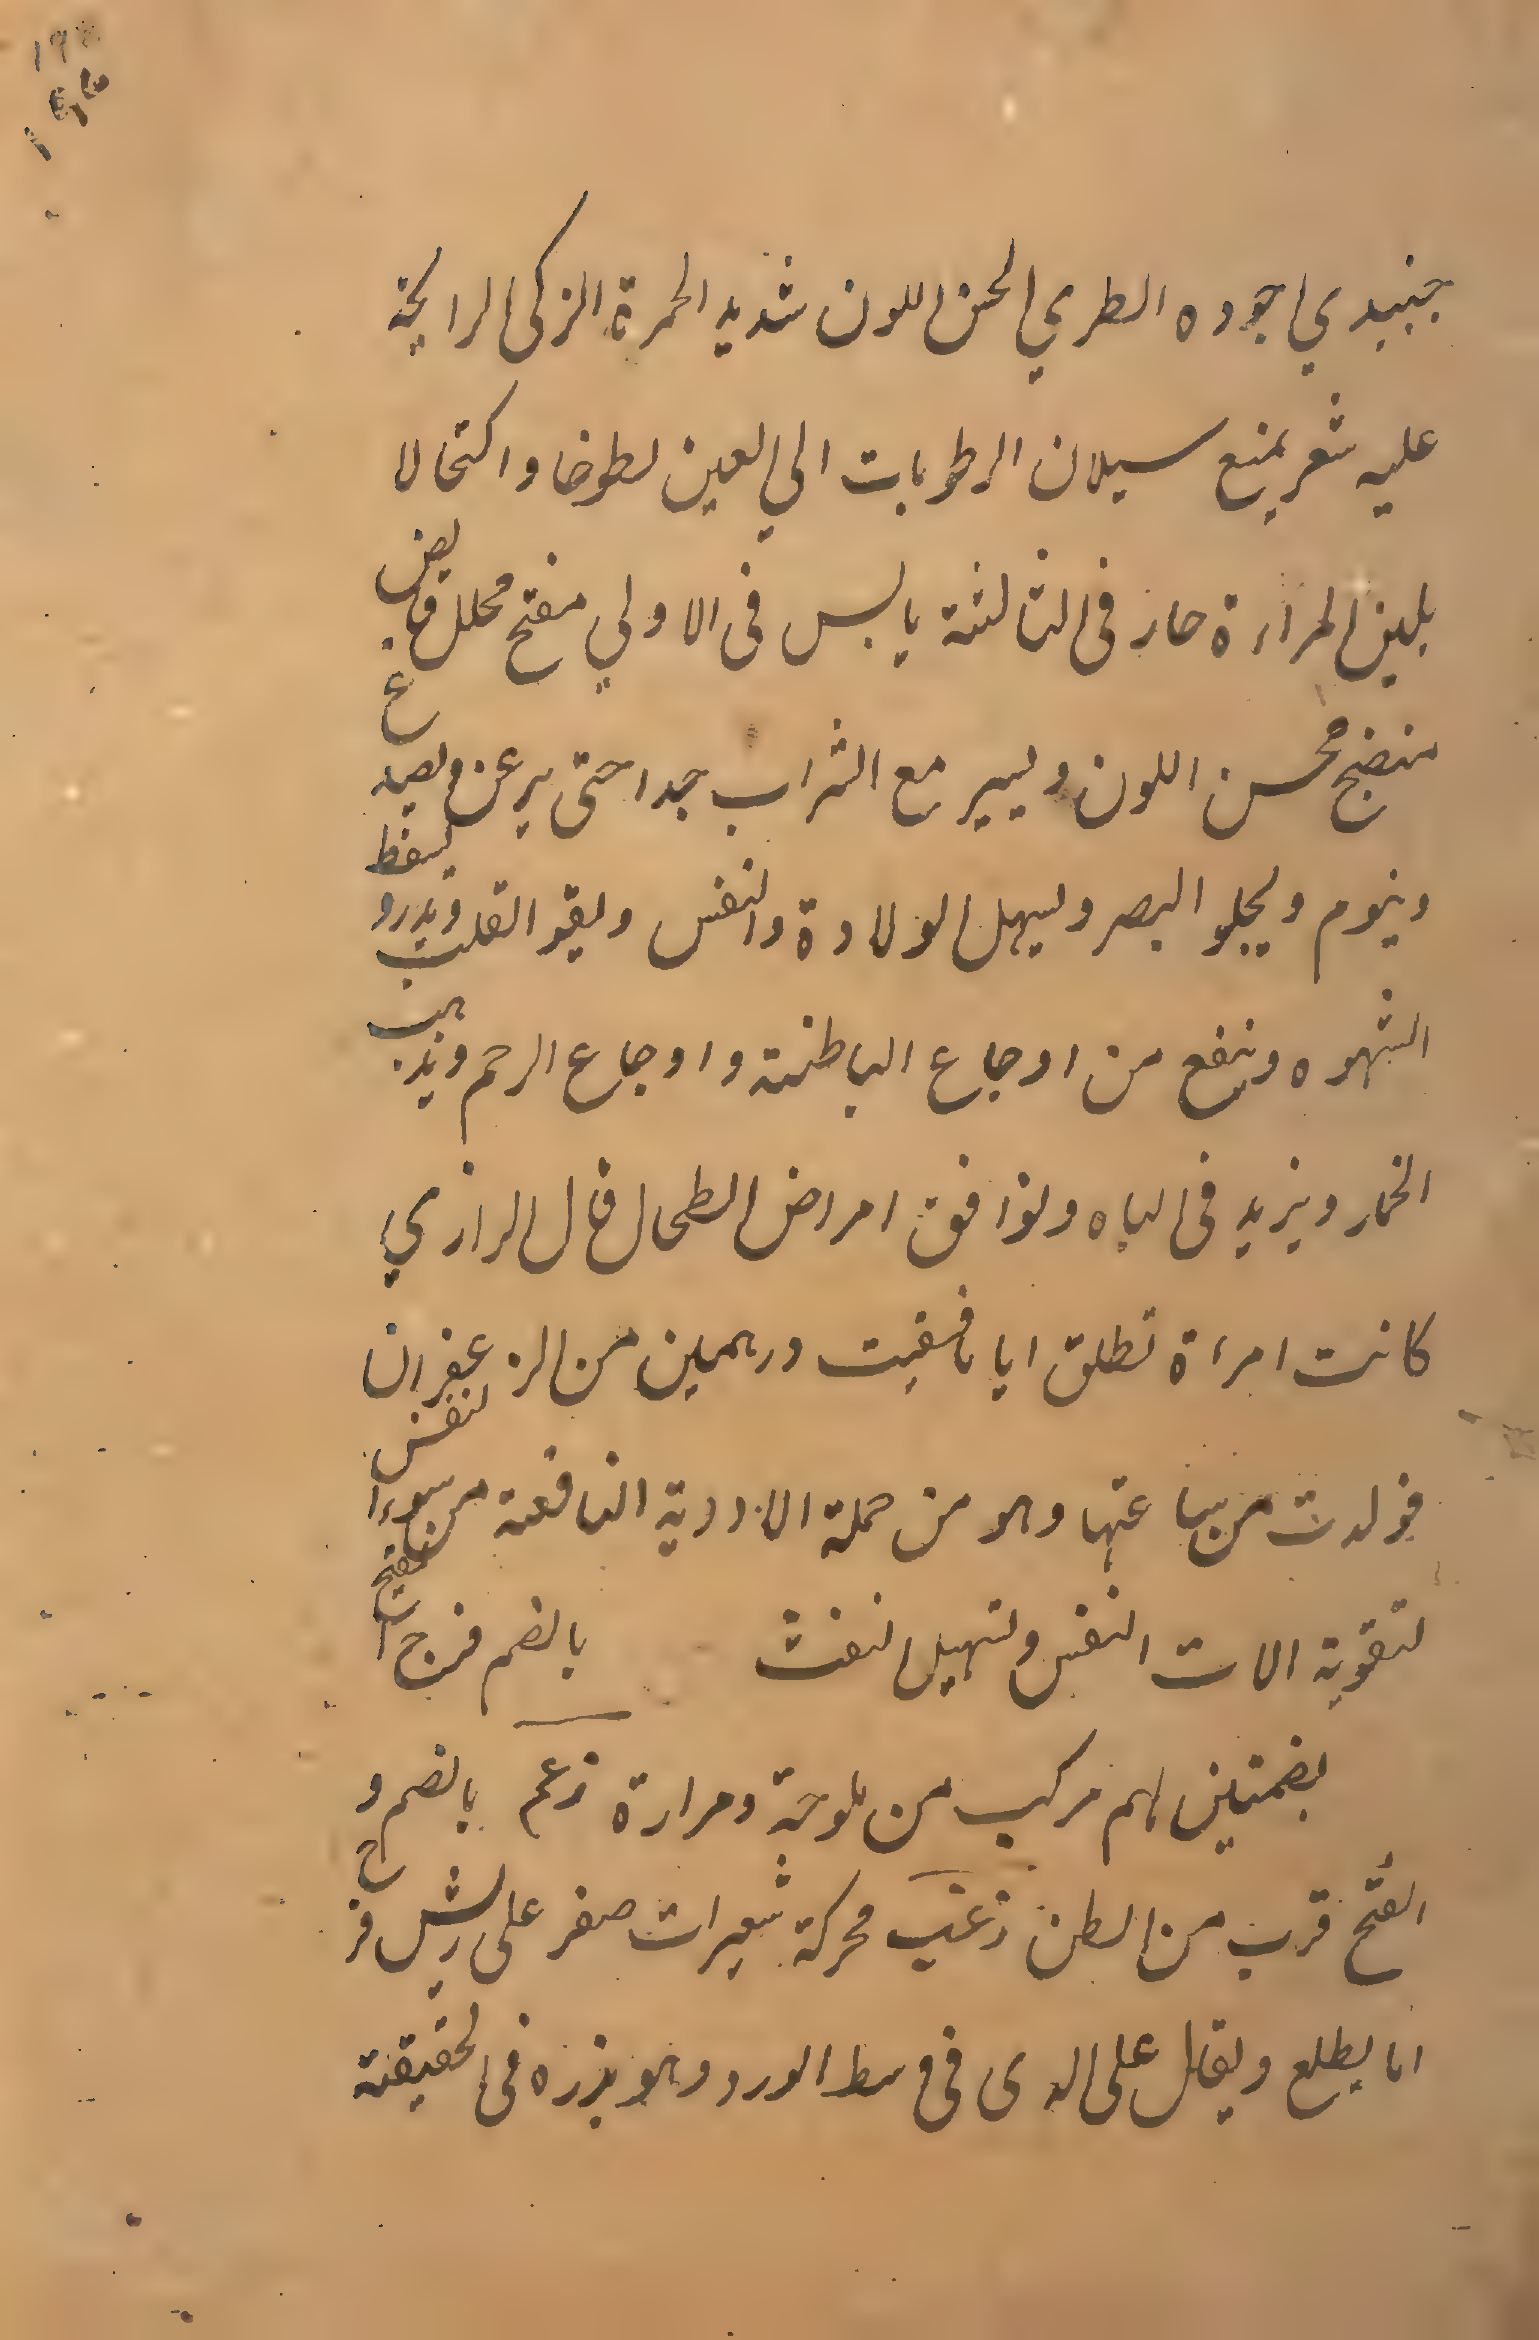 جنبدي اجوده الطري الحسن اللون شديد الحمرة الزكى الرايحة
عليه شعر يمنع سيلان الرطوبات الي العين لطوخا واكتحالا
بلبن المراءة حار فى الثالثة يابس فى الاولي مفتح محلل قابض
منضج محسن اللون ويسير مع الشراب جدا حتى يرعن ويصدع
وينوم ويجلو البصر ويسهل الولادة والنفس ويقو القلب ويدرو يسقط
الشهوه وينفع من اوجاع الباطنة واوجاع الرحم ويذهب
الخمار ويزيد فى الباه ويوافق امراض الطحال قال الرازي
كانت امرءة تطلق اياما فسقيت درهمين من الزعفران
فولدت من ساعتها وهو من جملة الادوية النافعة من سوء النفس
لتقوية الات النفس ولتسهيل النفث بالضم فرج
بضمتين لهم مركب من ملوحة ومرارة زعم بالضم و
الفتح قرب من البطن زغب محركة شعيرات صفر على ريش فرخ
اما يطلع ويقال على الدى فى وسط الورد وهو بزره فى الحقيقة